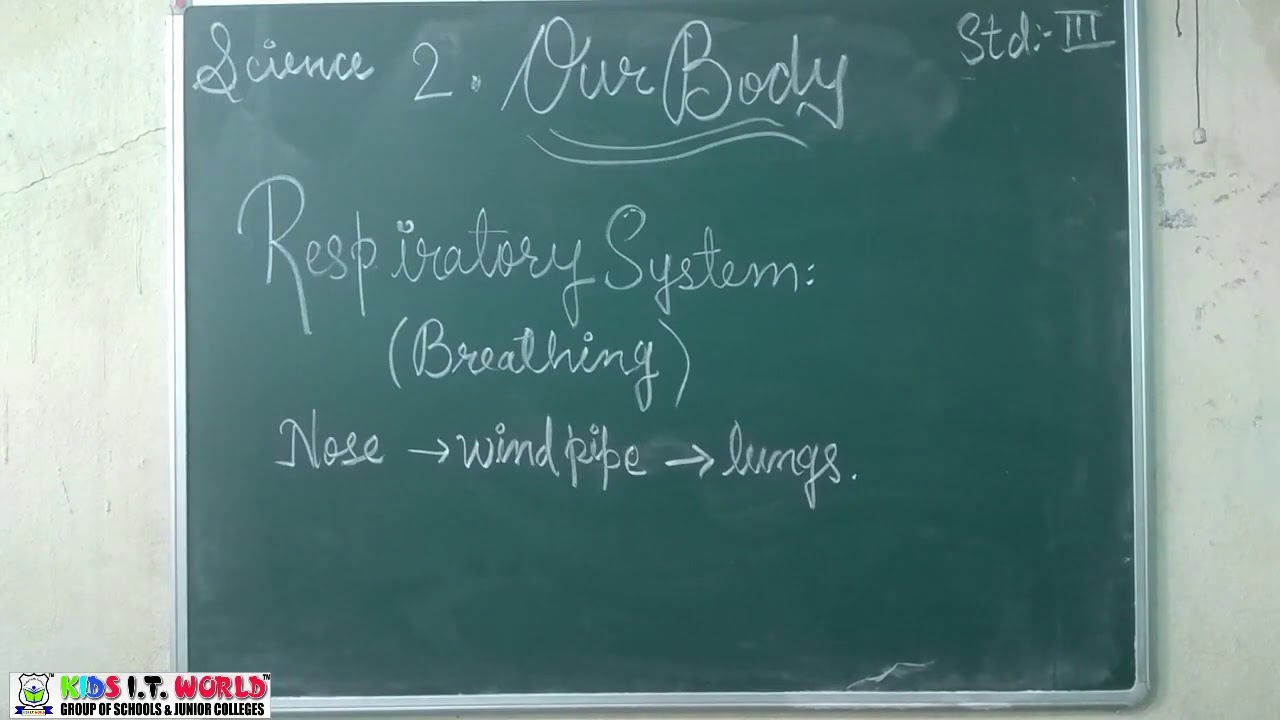 Science 2. Our Body Std:- III
Respiratory System:
(Breathing)
Nose → windpipe → lungs.
KIDS I.T. WORLD™
GROUP OF SCHOOLS & JUNIOR COLLEGES